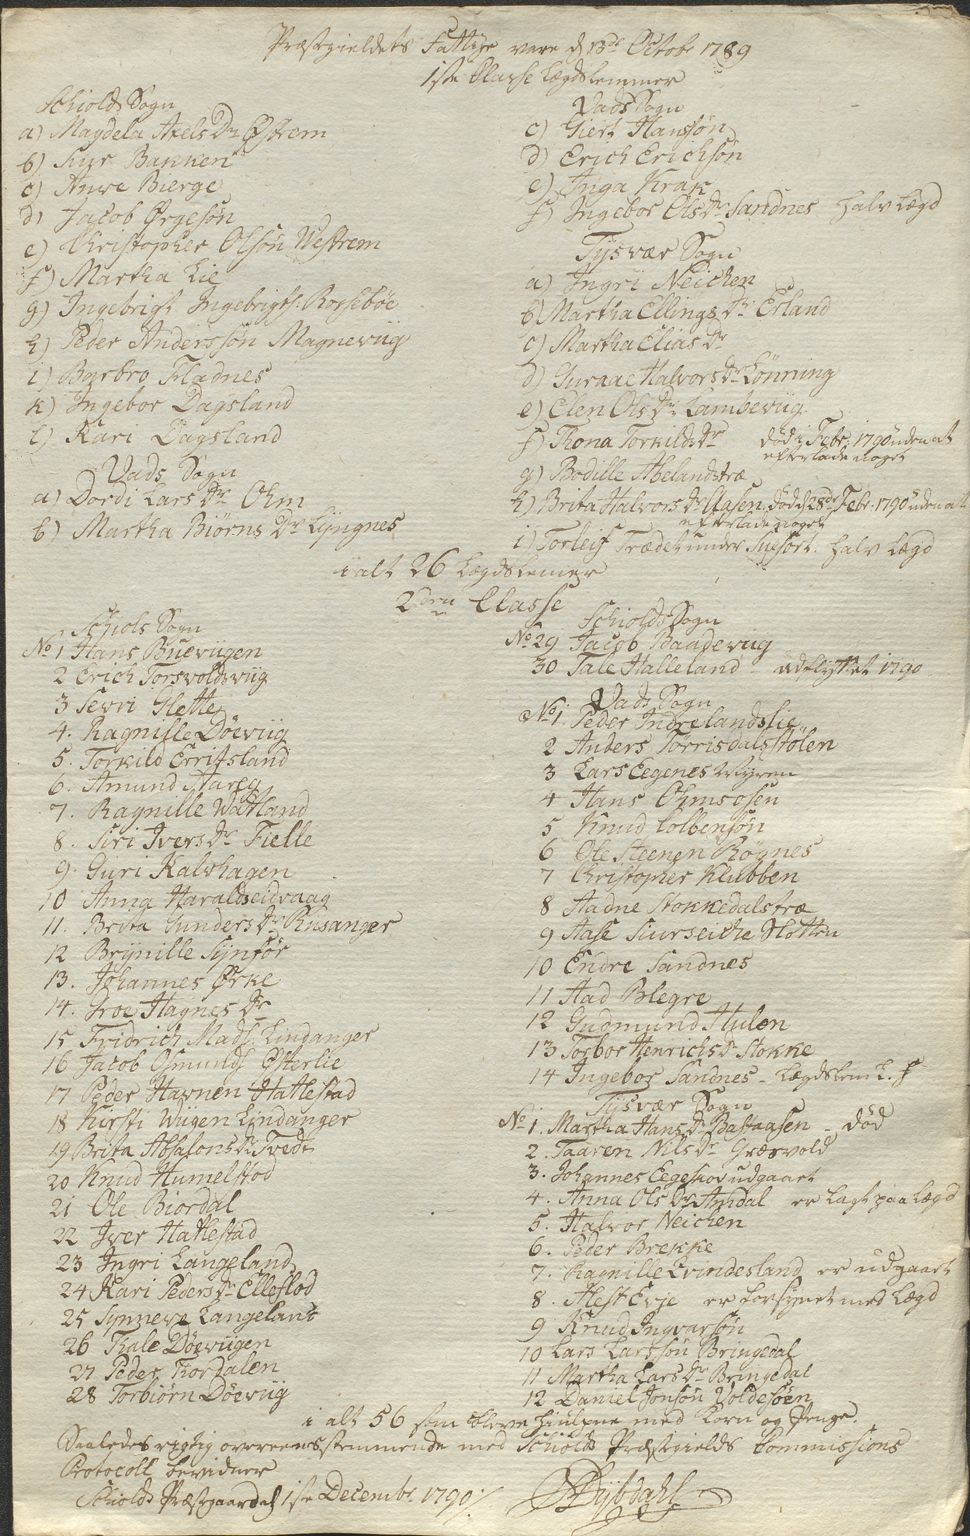 Præstgieldets Fattige vare d 13de Octobr 1789
1ste Classe Lægdslemmer
Schiolds Sogn
a) Magdela Axels Dr Østrem
b) Siur Bakken
c) Anne Bierge
d) Jacob Ørgesøn
e) Christopher Olsøn Westrem
f) Martha Lie
g) Ingebrigt Ingebrigts. Rossebøe
h) Peder Anderssøn Magneviig
i) Barbro Fladnes
k) Ingebor Dagsland
l) Kari Dagsland
Vads Sogn
a) Dordi Lars Dr Ohm
b) Martha Biørns Dr Lyngnes
Vads Sogn
c) Giert Hansøn
d) Erich Erichsøn
e) Inga Krak
f) Ingebor Olsdr. Sandnes halv Lægd
Tysvær Sogn
a) Ingri Neichen
b) Martha Ellings Dr Erland
c) Martha Elias Dr
d) Guraae Halvors Dr Lønning
e) Elen Ols Dr Lambeviig
f) Rona Torkilds Dr død i Febr. 1790 uden at
efterlade noget
g) Bodille Abelandstræ
h) Brita Halvors Dr Aasen, død d 28de Febr. 1790 uden at
efterlade noget
i) Torleif Trædet under halv Lægd
i alt 26 Lægdslemer
2den Classe
Schiols Sogn
No 1 Hans Bueviigen
2 Erich Torsvoldsviig
3 Sevri Slette
4. Ragnille Døeviig
5. Torkild Erritsland
6. Amund Aareg
7. Ragnille Watland
8. Siri Ivers Dr Fielle
9. Guri Kalvhagen
10 Anna Haraldseidvaag
11. Brita Gunders Dr Risanger
12 Brynille Synfør
13. Johannes Ørke
14. Groe Hagnes Dr
15 Fridrich Mads. Lindanger
16 Jacob Osmunds. Østerlie
17 Peder Havnen Hattestad
18 Kirsti Wiigen Lindanger
19 Brita Absalons Dr Tvedt
20 Knud Humelstod
21 Ole Biordal
22 Iver Hattestad
23 Ingri Langeland
24 Kari Peders Dr Elleflod
25 Synneve Langeland
26 Tale Døeviigen
27 Peder Tordalen
28 Torbiørn Døeviig
Schiolds Sogn
No 29 Jacob Baadeviig
30 Tale Halleland udflyttet 1790
Vads Sogn
No 1. Peder Indrelandslie
2 Anders Tørrisdalsstølen
3 Lars Eegenes Myren
4 Hans Ohmsosen
5 Knud Colbensøn
6 Ole Steenen Røgnes
7 Christopher Klubben
8 Aadne Stokkedalstræ
9 Aase Siurseiche Slotten
10 Endre Sandnes
11 Aad Blegre
12 Gudmund Hulen
13 Torbor Henrichs Dr Stokke
14 Ingebor Sandnes - Lægdslem L. f
Tysvær Sogn
No 1. Martha Hans Dr Bastaasen - død
2. Taaren Nils Dr Græsvold
3. Johannes Eegeskov udgaaet
4. Anna Ols Dr Amdal er lagt paa Lægd
5. Halvor Neichen
6. Peder Brekke
7. Ragnille Qvindesland er udgaaet
8. Alest Evje er forsynet med Lægd
9 Knud Ingvarsøn
10 Lars Larssøn Bringedal
11 Martha Lars Dr Bringedal
12 Daniel Jonsøn Voldesøen
i alt 56 som bleve hiulpne med Korn og Penge.
Saaledes rigtig overeensstemmende med Schiolds Præstgields Commissions
Protocoll bevidner
Schiolds Præstgaard d 1ste Decembr. 1790